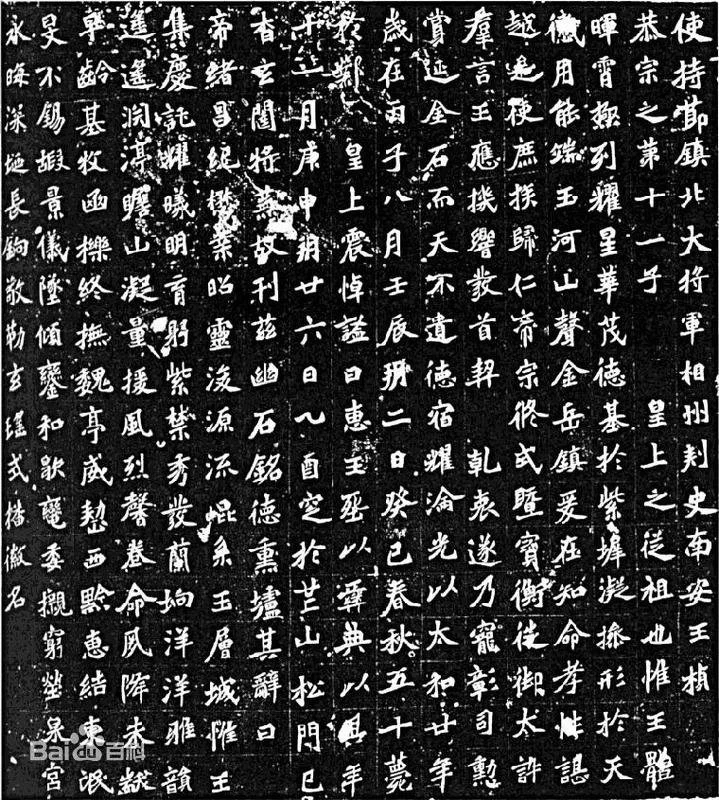 使持節鎮北大將軍相州刺史南安王楨
恭宗之第十一子 皇上之從祖也惟王體
暉霄極列耀星華茂德基於紫墀凝操形於天
儀用能端玉河山聲金岳鎮爰在知命孝性諶
越是使庶族歸仁帝宗攸式暨寶衡徙御太訊
羣言王應機響發首契 乾衷遂乃寵彰司勳
賞延金石而天不遺德宿耀淪光以太和廿年
歲在丙子八月壬辰朔二日癸巳春秋五十薨
於鄴 皇上震悼諡曰惠王葬以彝典以其年
十一月庚申朔廿六日乙酉窆於芒山松門已
杳玄闥將蕪故刊茲幽石銘德熏壚其辭曰
帝緒昌紀懋業昭靈浚源流崐系玉層城惟王
集慶託耀曦明育躬紫禁秀發蘭坰洋洋雅韻
遙遙淵渟瞻山凝量援風烈馨卷命夙降未黻
早齡基牧函櫟終撫魏亭威整西黔惠結東氓
旻不錫嘏景儀墜傾鑾和歇轀委櫬窮塋泉宮
永晦深埏長鉤敬勒玄瑤式播徽名
Bai百科